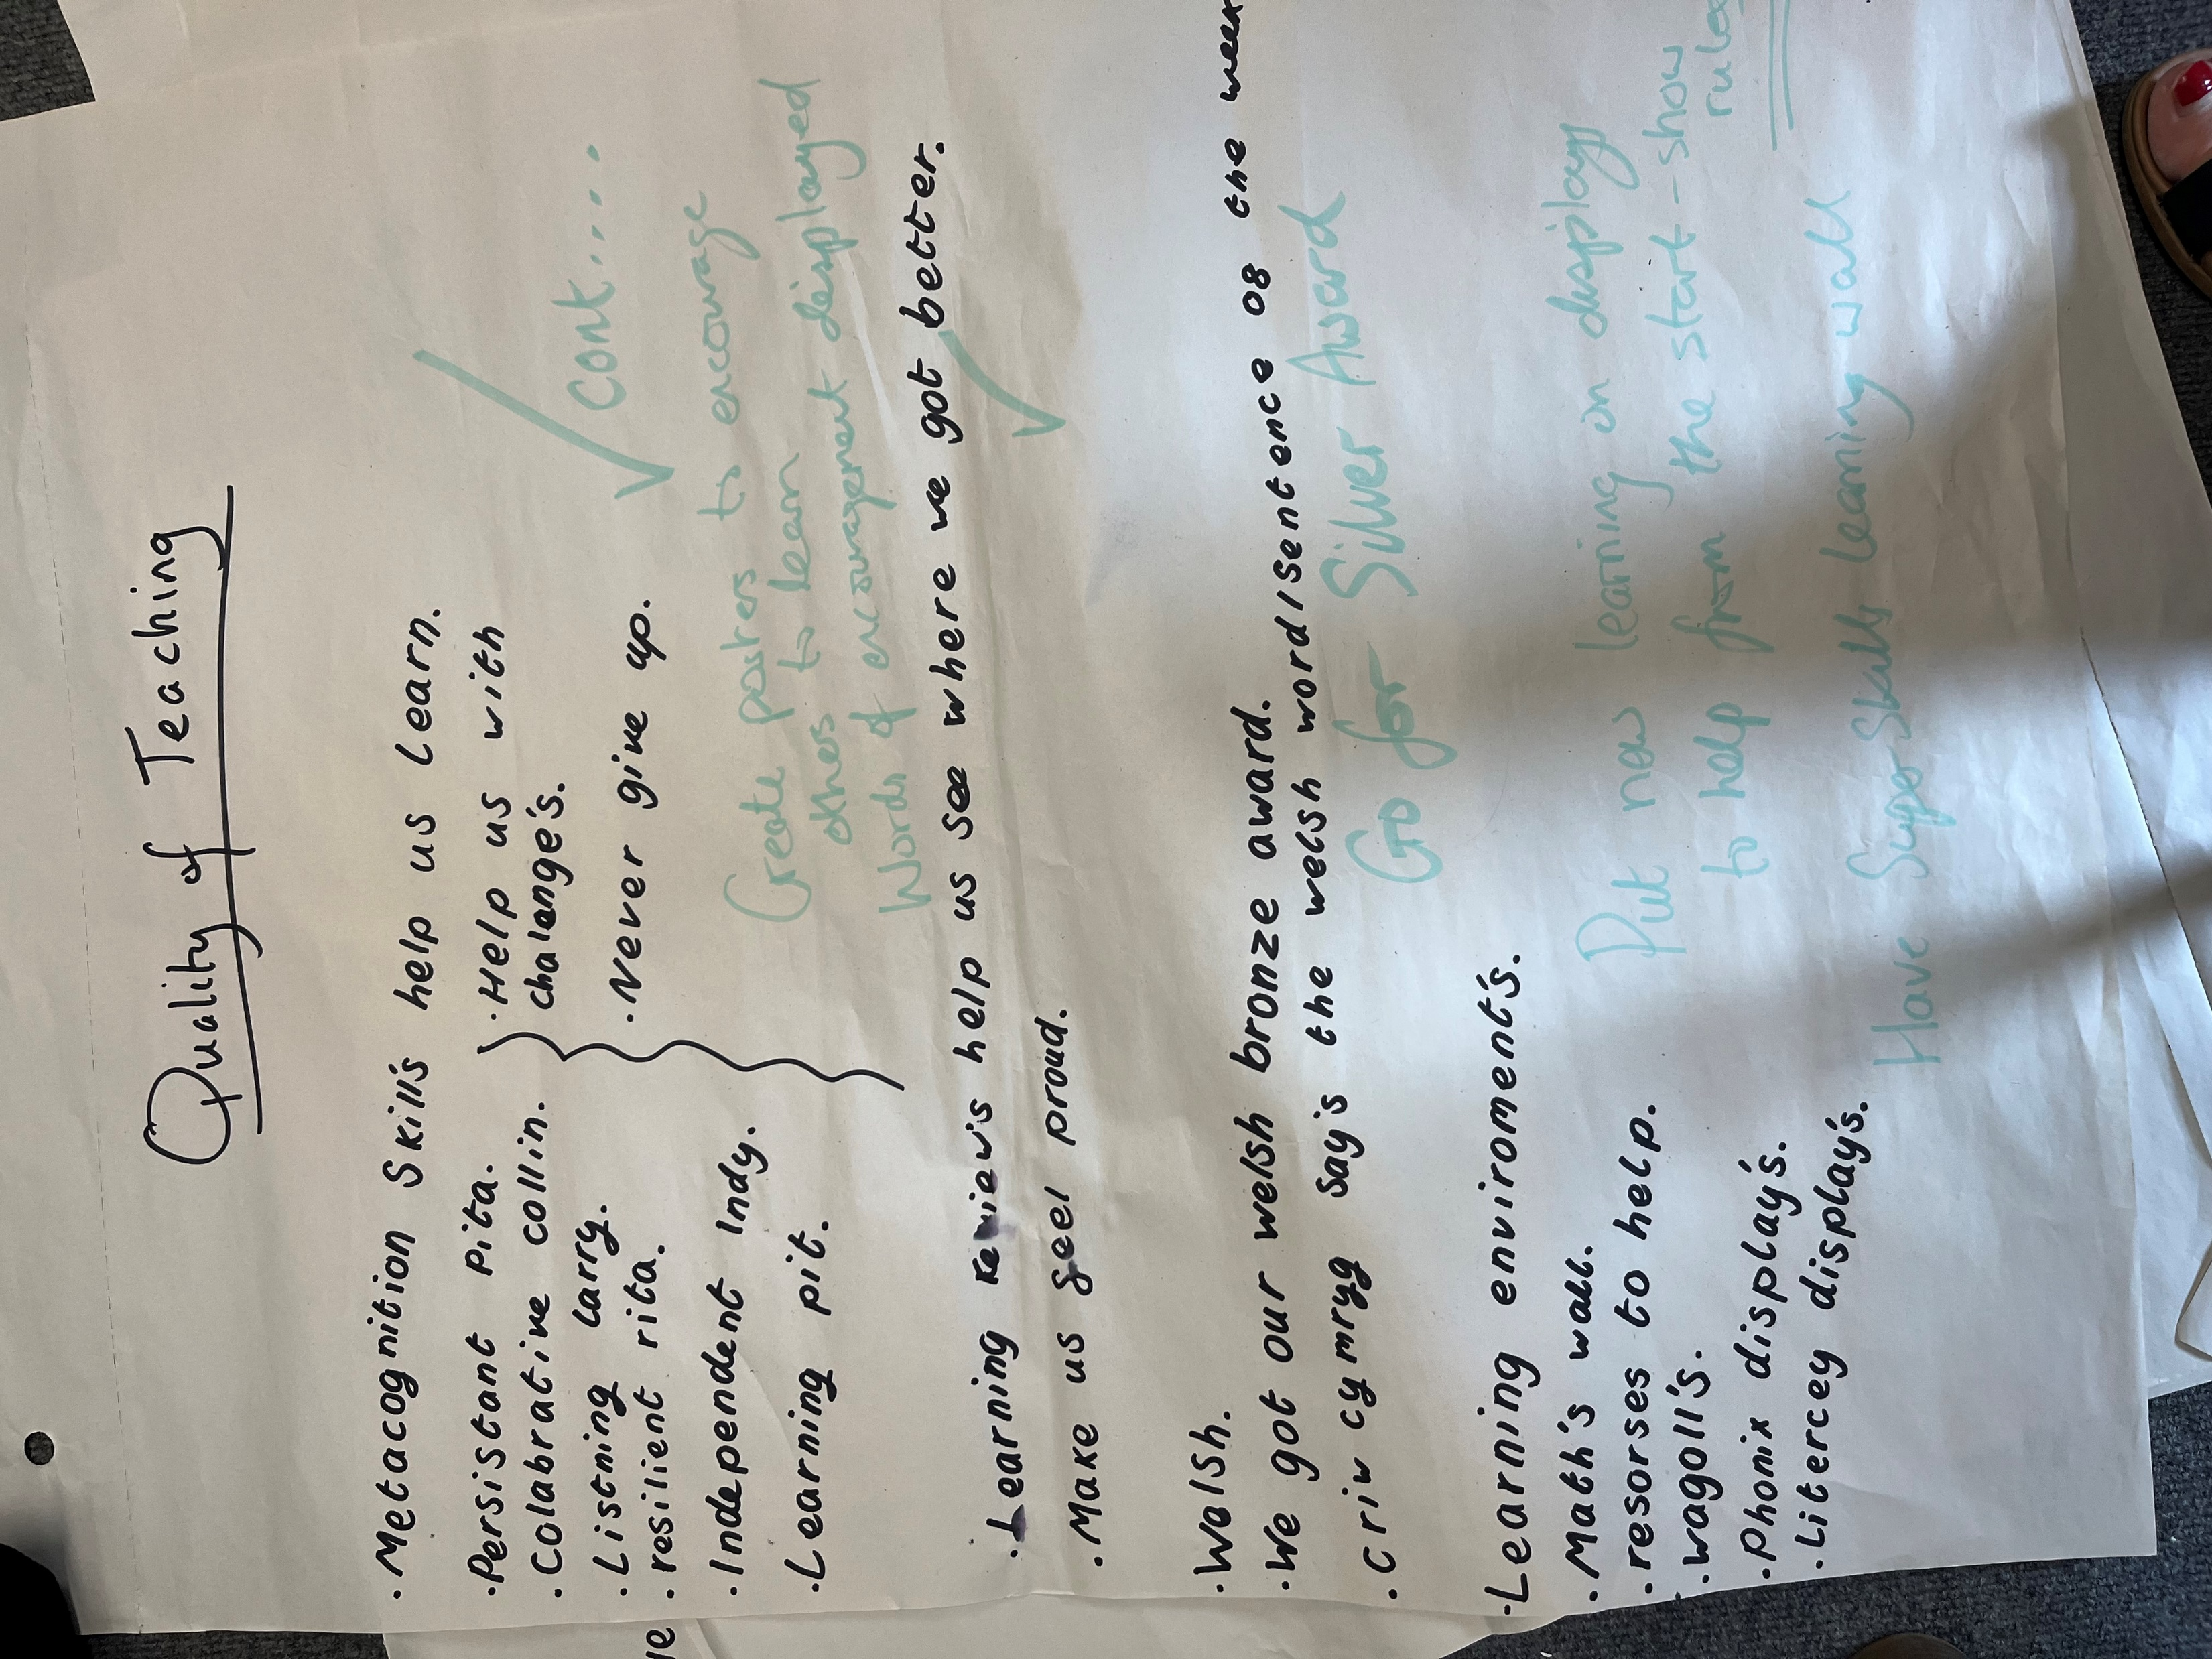 Quality of Teaching
. Metacognition Skill's help us learn.
. Persistant pita.
. Colabrative collin.
. Listning larry.
. resilient rita.
. Independent Indy.
. Learning pit.
. Help us with
chalange's.
. Never give up.
cont....
Create posters to encourage
others to learn
Words of encouragement displayed
. Learning Review's help us see where we got better.
. Make us feel proud.
. Welsh.
. We got our welsh bronze award.
. Criw cymryg say's the welsh word/sentence of the week
Go for Silver Award
. Learning enviroment's.
. Math's wall.
. resorses to help.
. wagoll's.
. Phonix display's.
. Litercey display's.
Put new learning on display
to help from the start - show
rules
Have Super Skills learning wall